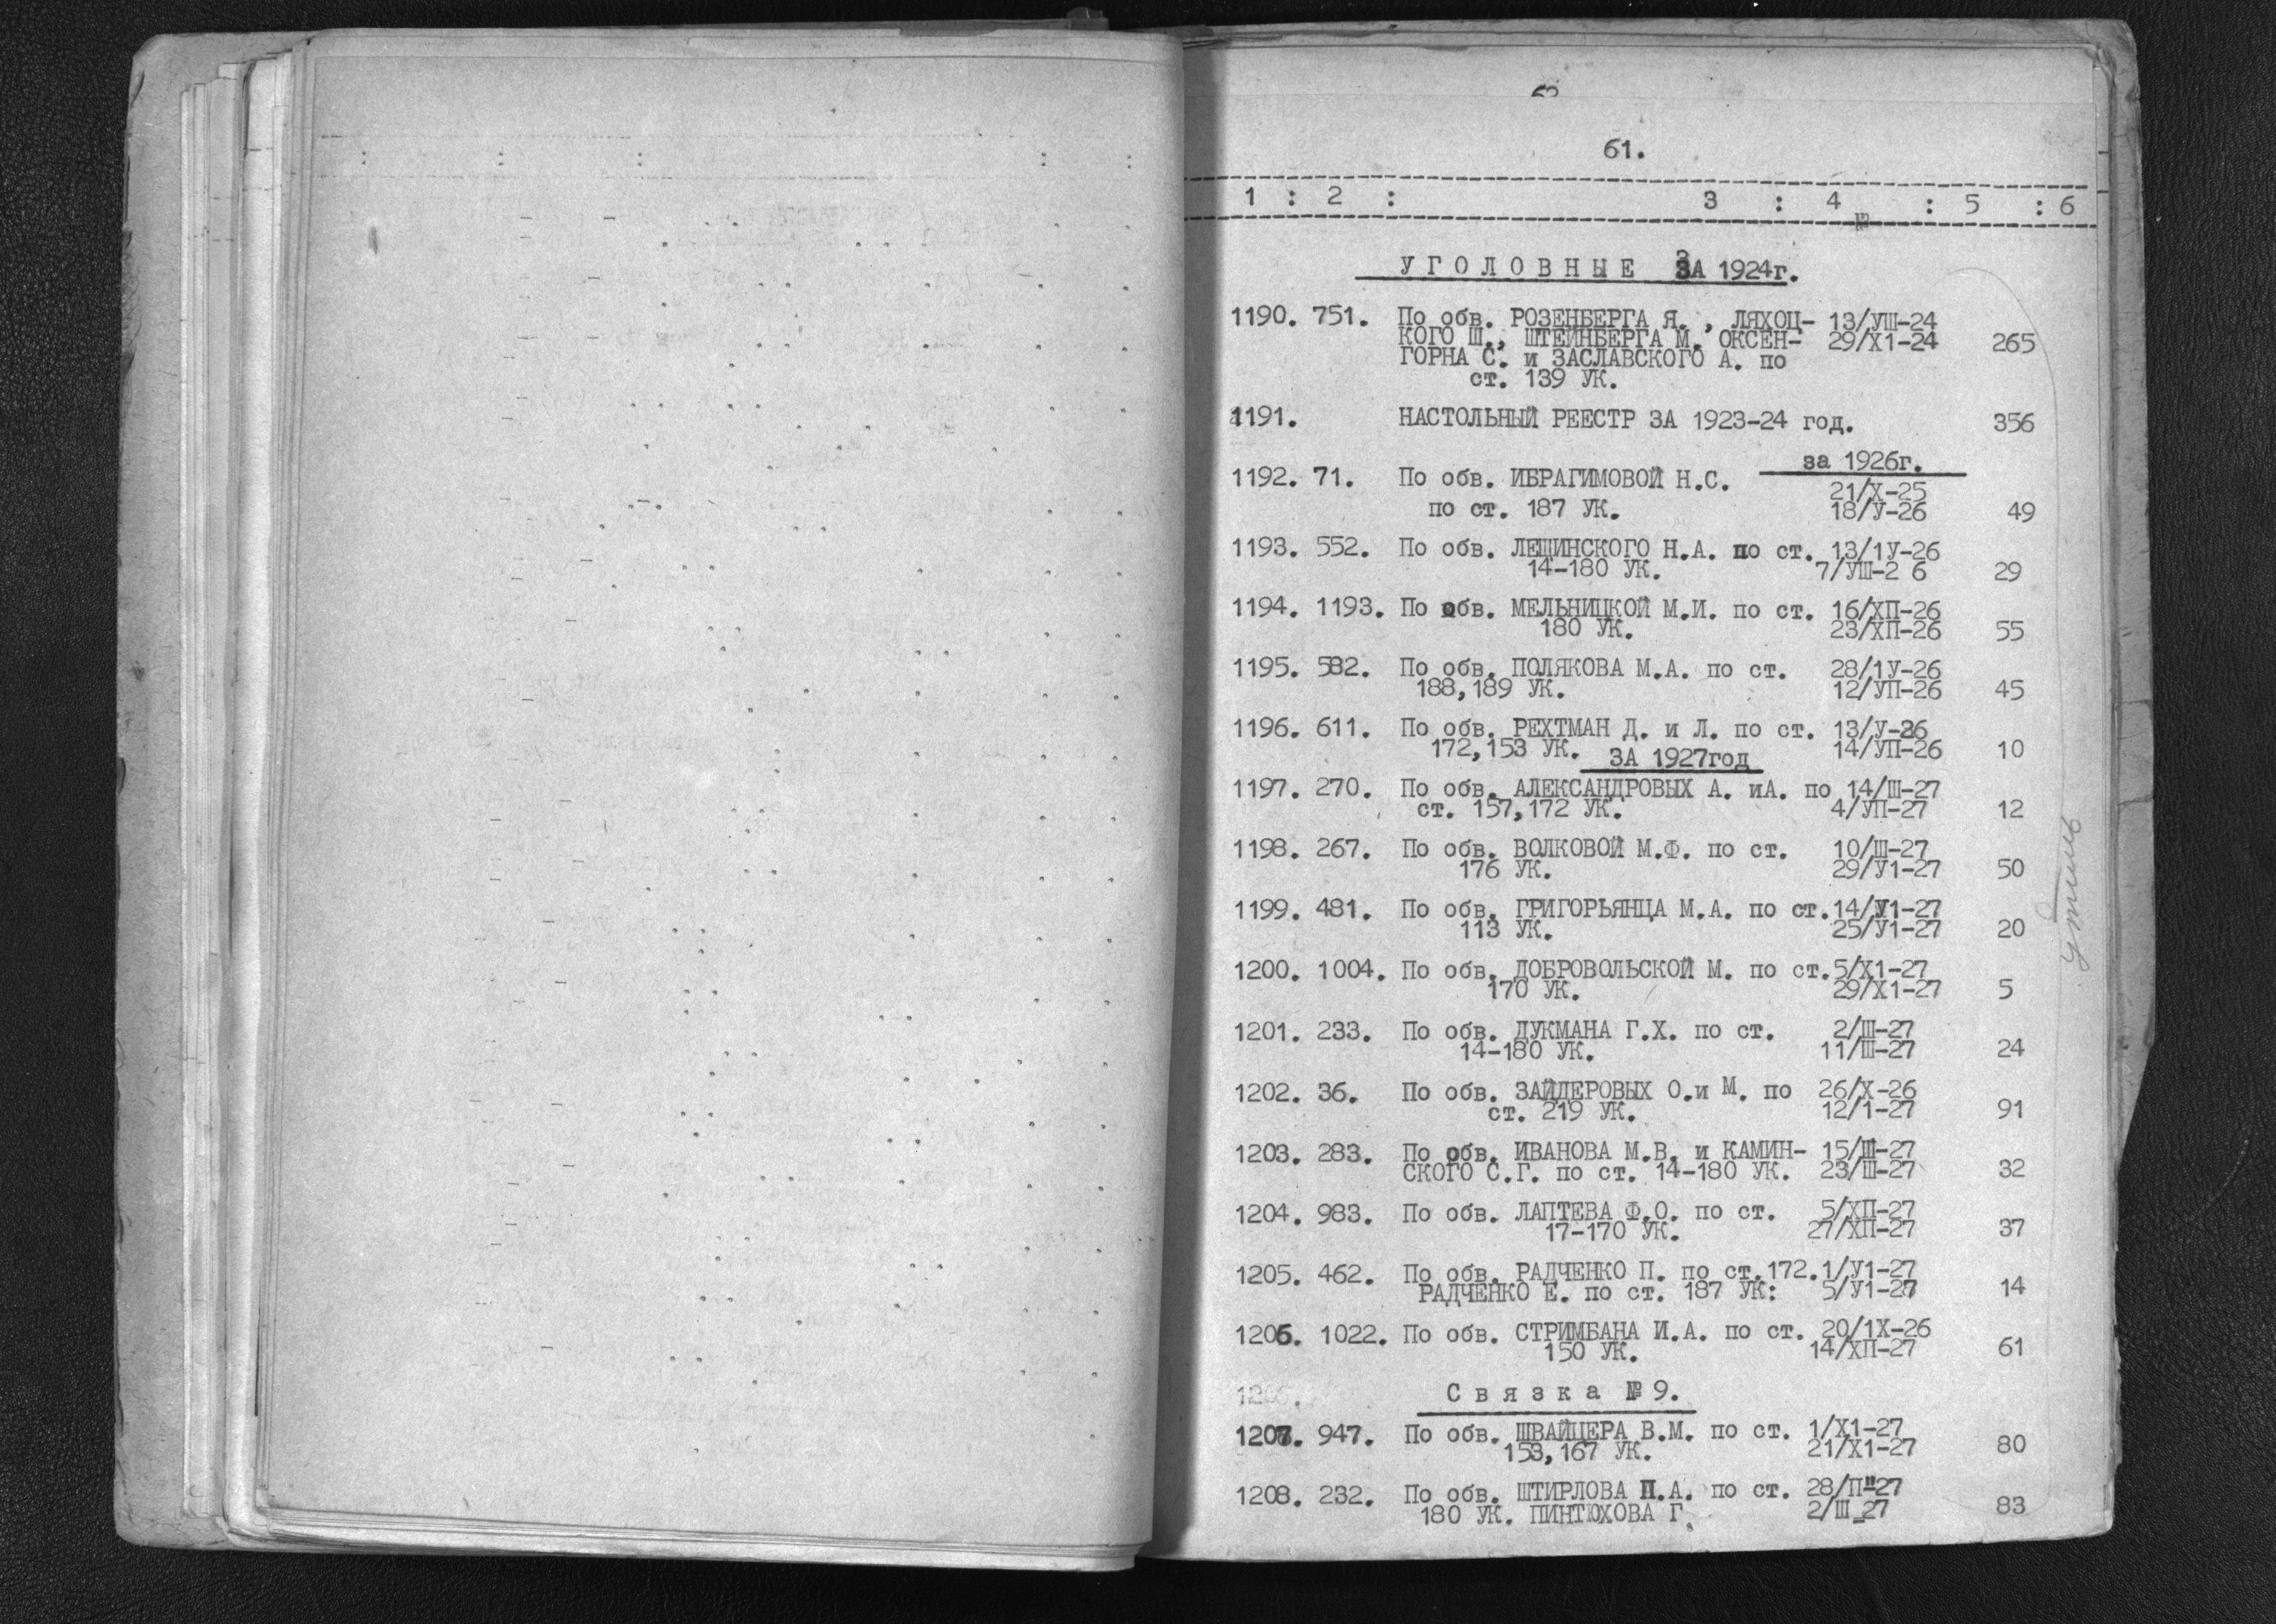 61.
1 : 2 : 3 : 4 : 5 : 6
УГОЛОВНЫЕ ЗА 1924г.
1190. 751. По обв. РОЗЕНБЕРГА Я., ЛЯХОЦ- 13/УШ-24
КОГО Ш., ШТЕЙНБЕРГА М. ОКСЕН- 29/Х1-24 265
ГОРНА С. и ЗАСЛАВСКОГО А. по
ст. 139 УК.
1191. НАСТОЛЬНЫЙ РЕЕСТР ЗА 1923-24 год. 356
за 1926г.
1192. 71. По обв. ИБРАГИМОВОЙ Н.С. 21/Х-25
по ст. 187 УК. 18/У-26 49
1193. 552. По обв. ЛЕЩИНСКОГО Н.А. по ст. 13/1У-26
14-180 УК. 7/УШ-2 6 29
1194. 1193. По обв. МЕЛЬНИЦКОЙ М.И. по ст. 16/ХП-26
180 УК. 23/ХП-26 55
1195. 582. По обв. ПОЛЯКОВА М.А. по ст. 28/1У-26
188,189 УК. 12/УП-26 45
1196. 611. По обв. РЕХТМАН Д. и Л. по ст. 13/У-26
172,153 УК. 14/УП-26 10
ЗА 1927год
1197. 270. По обв. АЛЕКСАНДРОВЫХ А. иА. по 14/Ш-27
ст. 157,172 УК. 4/УП-27 12
1198. 267. По обв. ВОЛКОВОЙ М.Ф. по ст. 10/Ш-27
176 УК. 29/У1-27 50
1199. 481. По обв. ГРИГОРЬЯНЦА М.А. по ст. 14/У1-27
113 УК. 25/У1-27 20
1200. 1004. По обв. ДОБРОВОЛЬСКОЙ М. по ст. 5/Х1-27
170 УК. 29/Х1-27 5
1201. 233. По обв. ДУКМАНА Г.Х. по ст. 2/Ш-27
14-180 УК. 11/Ш-27 24
1202. 36. По обв. ЗАЙДЕРОВЫХ О.и М. по 26/Х-26
ст. 219 УК. 12/1-27 91
1203. 283. По обв. ИВАНОВА М.В. и КАМИН- 15/Ш-27
СКОГО С.Г. по ст. 14-180 УК. 23/Ш-27 32
1204. 983. По обв. ЛАПТЕВА Ф.О. по ст. 5/ХП-27
17-170 УК. 27/ХП-27 37
1205. 462. По обв. РАДЧЕНКО П. по ст.172. 1/У1-27
РАДЧЕНКО Е. по ст. 187 УК: 5/У1-27 14
1206. 1022. По обв. СТРИМБАНА И.А. по ст. 20/1Х-26
150 УК. 14/ХП-27 61
Связка № 9.
1207. 947. По обв. ШВАЙЦЕРА В.М. по ст. 1/Х1-27
153,167 УК. 21/Х1-27 80
1208. 232. По обв. ШТИРЛОВА П.А. по ст. 28/П-27
180 УК. ПИНТЮХОВА Г. 2/Ш-27 83
утиль